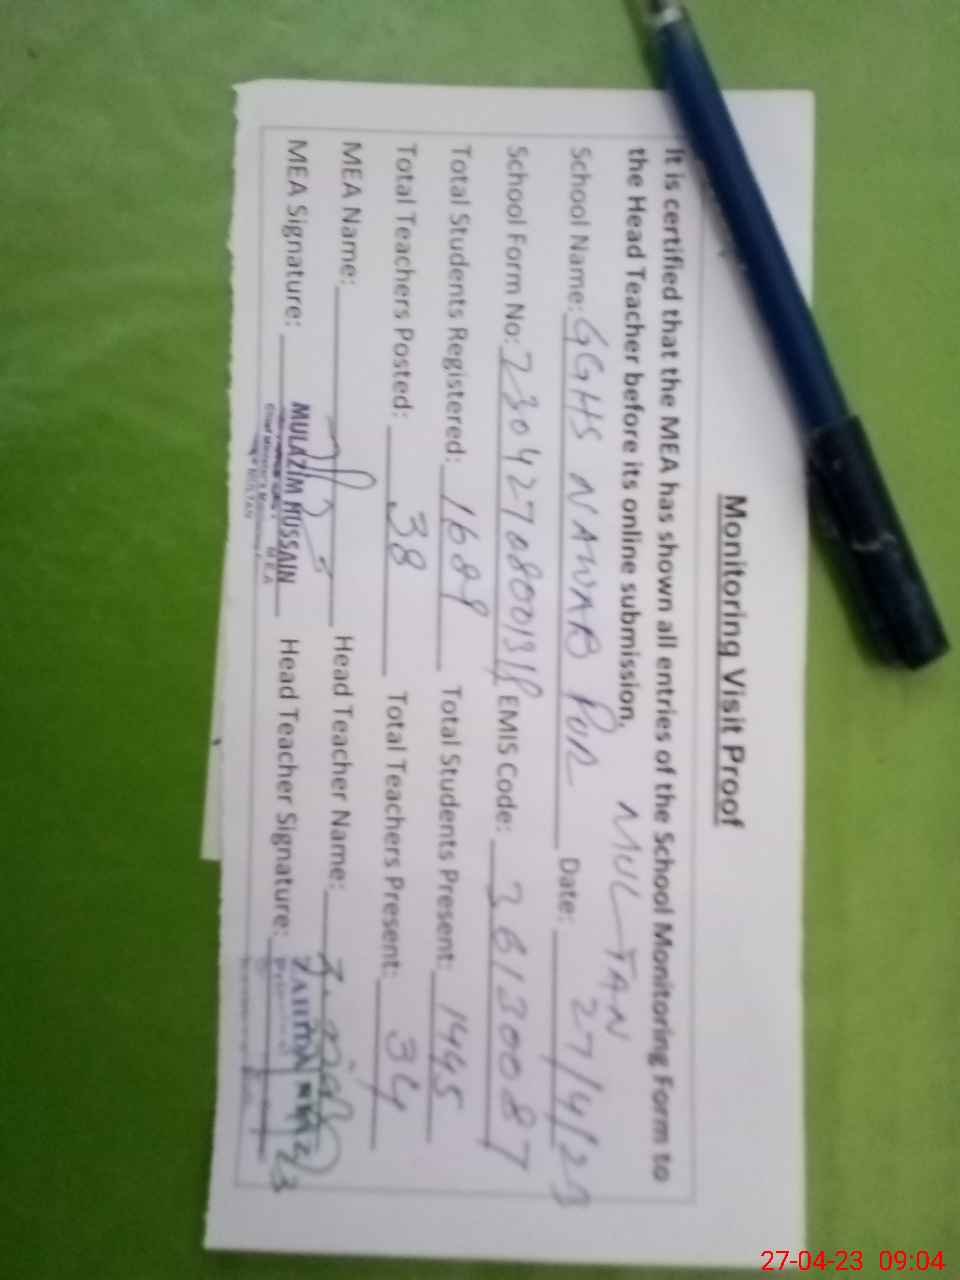 Monitoring Visit Proof
It is certified that the MEA has shown all entries of the School Monitoring Form to
the Head Teacher before its online submission.
MULTAN
School Name: GGHS NAWAB PUR Date: 27/4/23
School Form No: 230427080013 EMIS Code: 36130087
Total Students Registered: 1689 Total Students Present: 1445
Total Teachers Posted: 38 Total Teachers Present: 34
MEA Name: Head Teacher Name:
MEA Signature: Head Teacher Signature:
MULAZIM HUSSAIN
M E A
MULTAN
27-04-23 09:04